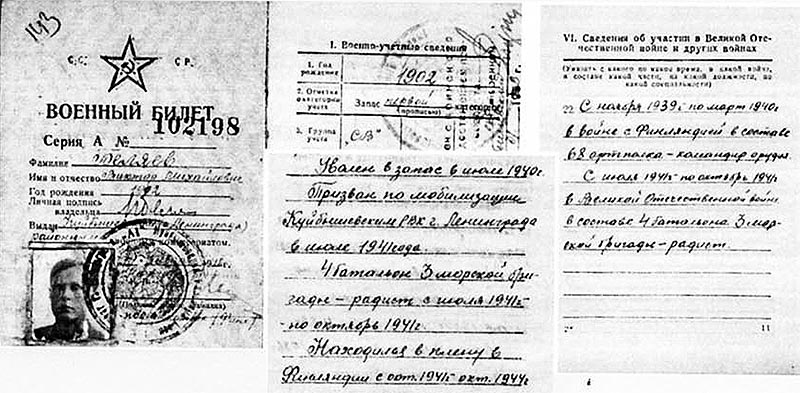 1413
С.С. С Р.
ВОЕННЫЙ БИЛЕТ
Серия А № 102198
Фамилия
Имя и отчество Виктор Михайлович
Год рождения 1902
Личная подпись
владельца
Выдан Куйбышевским Ленинграда)
районным комиссариатом.
I. Военно-учетные сведения
1. Год
рождения 1902
2. Отметка
о категории
учета Запас первой
(прописью)
3. Группа
учета "СВ"
Уволен в запас в июле 1940г.
Призван по мобилизации
Куйбышевским РВК г. Ленинграда
в июле 1941 года.
4 батальон 3 морской бри-
гады – радист с июля 1941г.
по октябрь 1941г.
Находился в плену в
Финляндии с окт. 1941г. окт. 1944г
VI. Сведения об участии в Великой Оте-
чественной войне и других войнах
(Указать с какого по какое время, в какой войне,
в составе какой части, на какой должности, по
какой специальности)
С ноября 1939г по март 1940г
в войне с Финляндией в составе
68 артполка – командир орудия
С июля 1941г. по октябрь 1941г
в Великой Отечественной войне
в составе 4 батальона 3 мор-
ской бригады – радист.
11